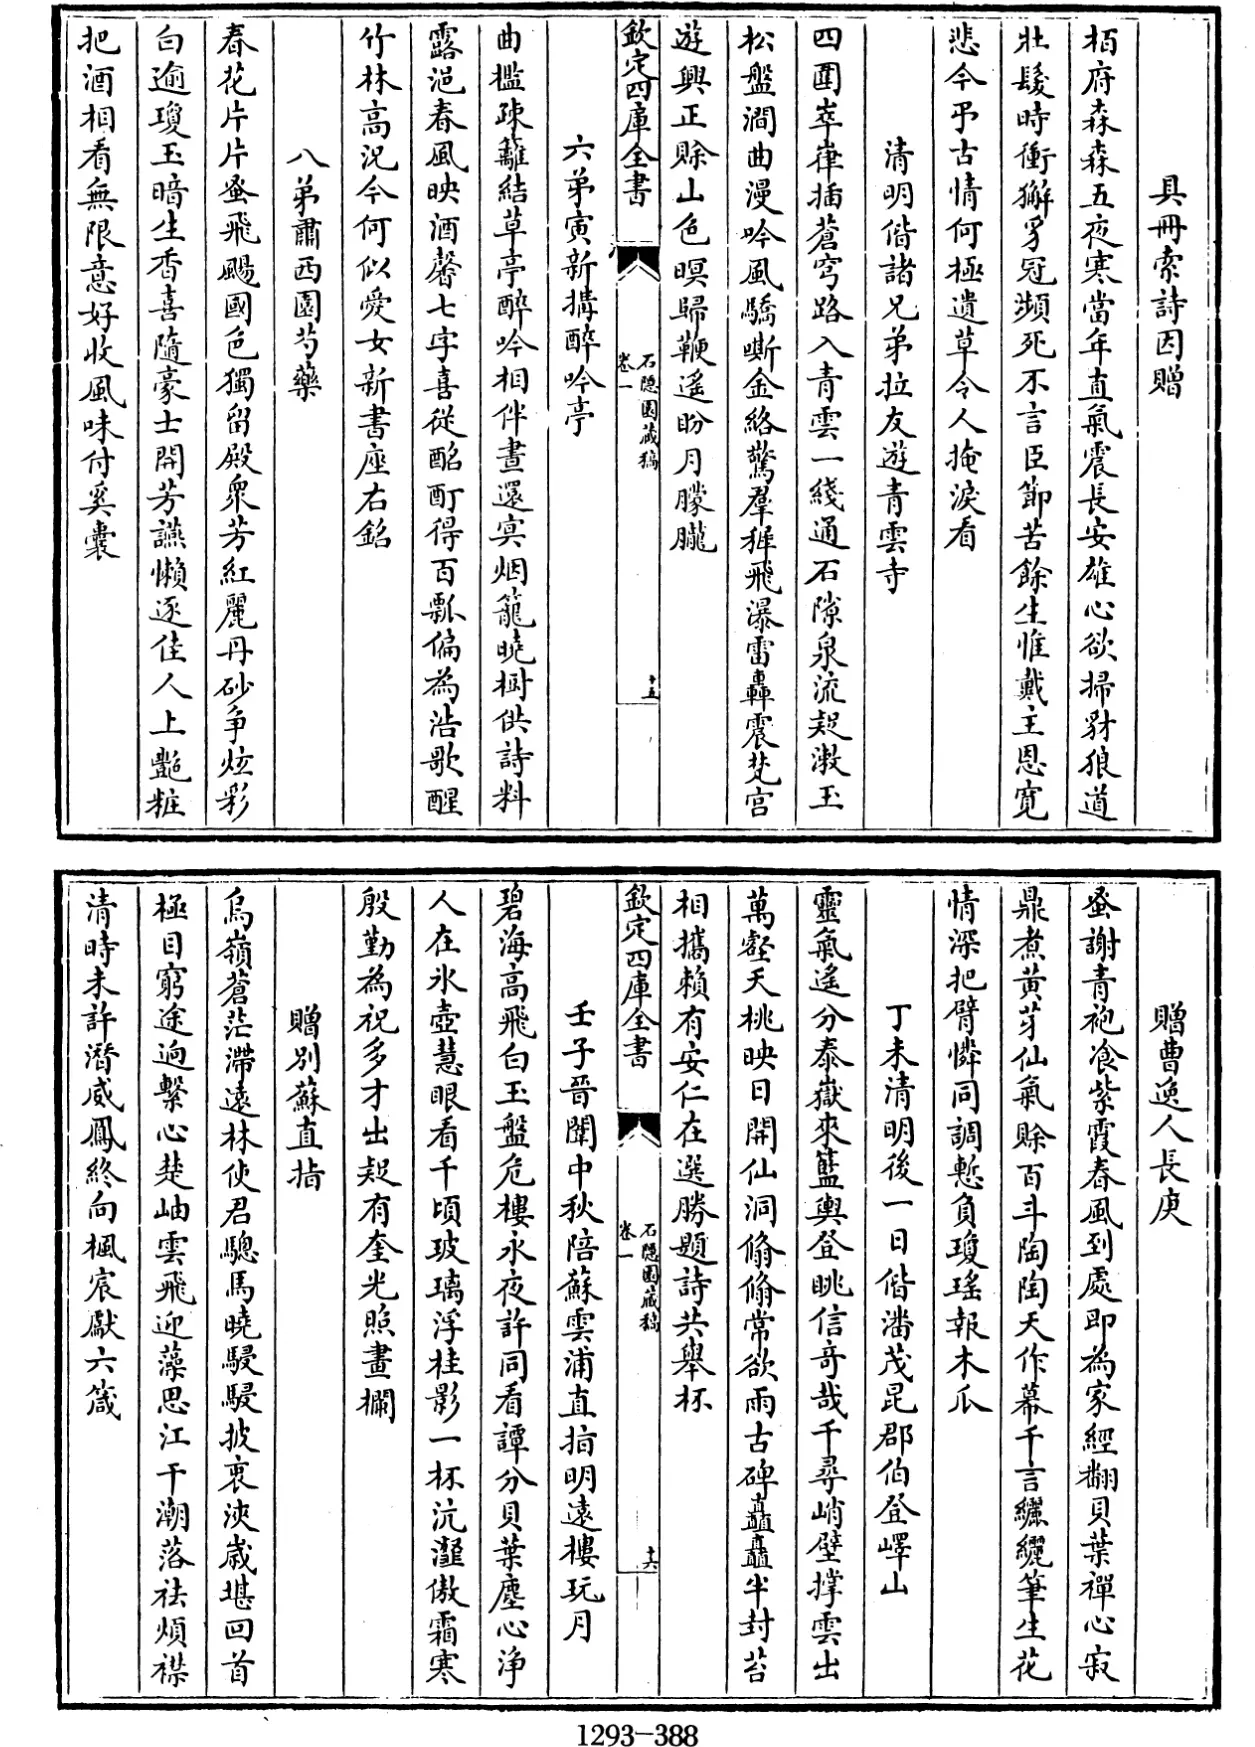 具冊索詩因贈
栢府森森五夜寒當年直氣震長安雄心欲掃豺狼道
壯髮時衝獬豸冠瀕死不言臣節苦餘生惟戴主恩寬
悲今弔古情何極遺草令人掩淚看
清明偕諸兄弟拉友遊青雲寺
四圍崒嵂插蒼穹路入青雲一綫通石隙泉流起漱玉
松盤澗曲漫吟風驕嘶金絡驚羣雞飛瀑雷轟震梵宫
遊興正賒山色暝歸鞭遙盼月朦朧
欽定四庫全書
石隱園藏稿
卷一
十五
六弟寅新搆醉吟亭
曲檻疎籬結草亭醉吟相伴晝還冥烟籠曉樹供詩料
露浥春風映酒馨七字喜從酩酊得百瓢偏為浩歌醒
竹林高況今何似愛女新書座右銘
八弟肅西園芍藥
春花片片蚤飛颺國色獨留殿衆芳紅麗丹砂争炫彩
白逾瓊玉暗生香喜隨豪士開芳讌懶逐佳人上艷粧
把酒相看無限意好收風味付奚囊
贈曹逸人長庚
蚤謝青袍飡紫霞春風到處即為家經翻貝葉禪心寂
鼎煮黄芽仙氣賒百斗陶陶天作幕千言纚纚筆生花
情深把臂憐同調慙負瓊瑤報木瓜
丁未清明後一日偕潘茂昆郡伯登嶧山
靈氣遙分泰嶽來籃輿登眺信奇哉千尋峭壁撑雲出
萬壑夭桃映日開仙洞翛翛常欲雨古碑矗矗半封苔
相攜賴有安仁在選勝題詩共舉杯
欽定四庫全書
石隱園藏稿
卷一
十六
壬子晉闈中秋陪蘇雲浦直指明遠樓玩月
碧海高飛白玉盤危樓永夜許同看譚分貝葉塵心浄
人在氷壺慧眼看千頃玻璃浮桂影一杯沆瀣傲霜寒
殷勤為祝多才出起有奎光照畫欄
贈别蘇直指
烏嶺蒼茫滯遠林使君驄馬曉駸駸披衷浹歲堪回首
極目窮途迥繫心楚岫雲飛迎藻思江干潮落祛煩襟
清時未許潛威鳳終向楓宸獻六箴
1293-388